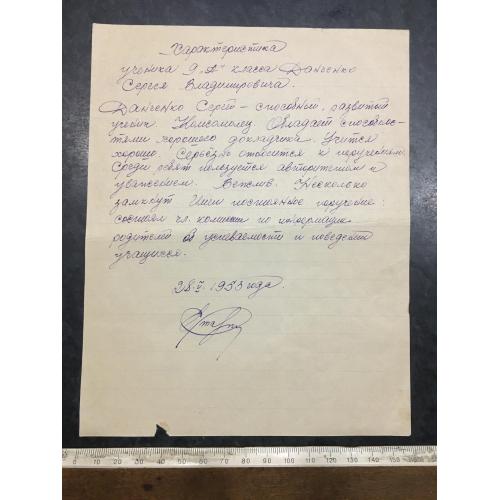 Характеристика
ученика 9 "А" класса Данченко
Сергея Владимировича.
Данченко Сергей - способный, развитой
ученик. Комсомолец. Обладает способнос-
тями хорошего докладчика. Учится
хорошо. Серьёзно относится к поручениям.
Среди ребят пользуется авторитетом и
уважением. Вежлив. Несколько
замкнут. Имел постоянное поручение:
состоял чл. комиссии по информации
родителей об успеваемости и поведении
учащихся.
28.V.1953 года.
0 10 20 30 40 50 60 70 80 90 100 110 120 130 140 150